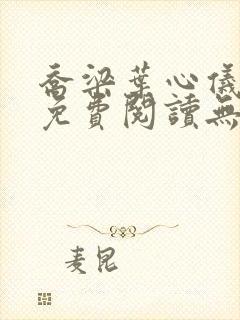 喬梁葉心儀
免費閱讀無
麦昆